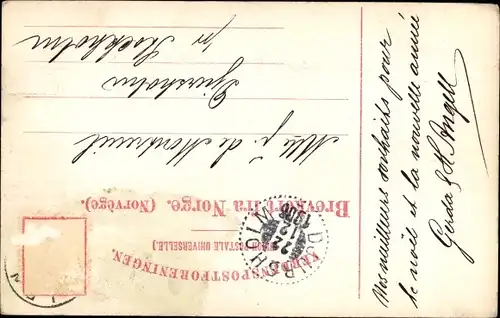 VERDENSPOSTFORENINGEN.
(UNION POSTALE UNIVERSELLE.)
Brevkort fra Norge. (Norvège).
DJURSHOLM
22
12
1906
Mlle J. de Montreuil
Djursholm
pr Stockholm
Nos meilleurs souhaits pour
le noël et la nouvelle année
Gerda & H. Angell